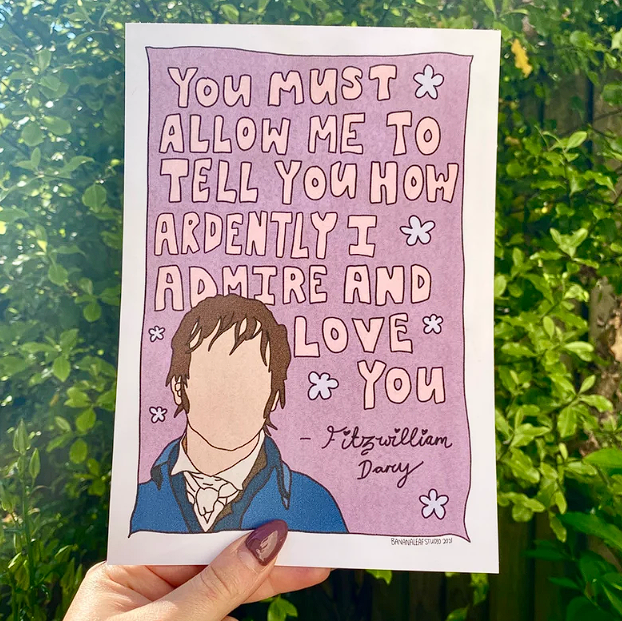 YOU MUST
ALLOW ME TO
TELL YOU HOW
ARDENTLY I
ADMIRE AND
LOVE
YOU
- Fitzwilliam
Darcy
BANANALEAFSTUDIO 2021